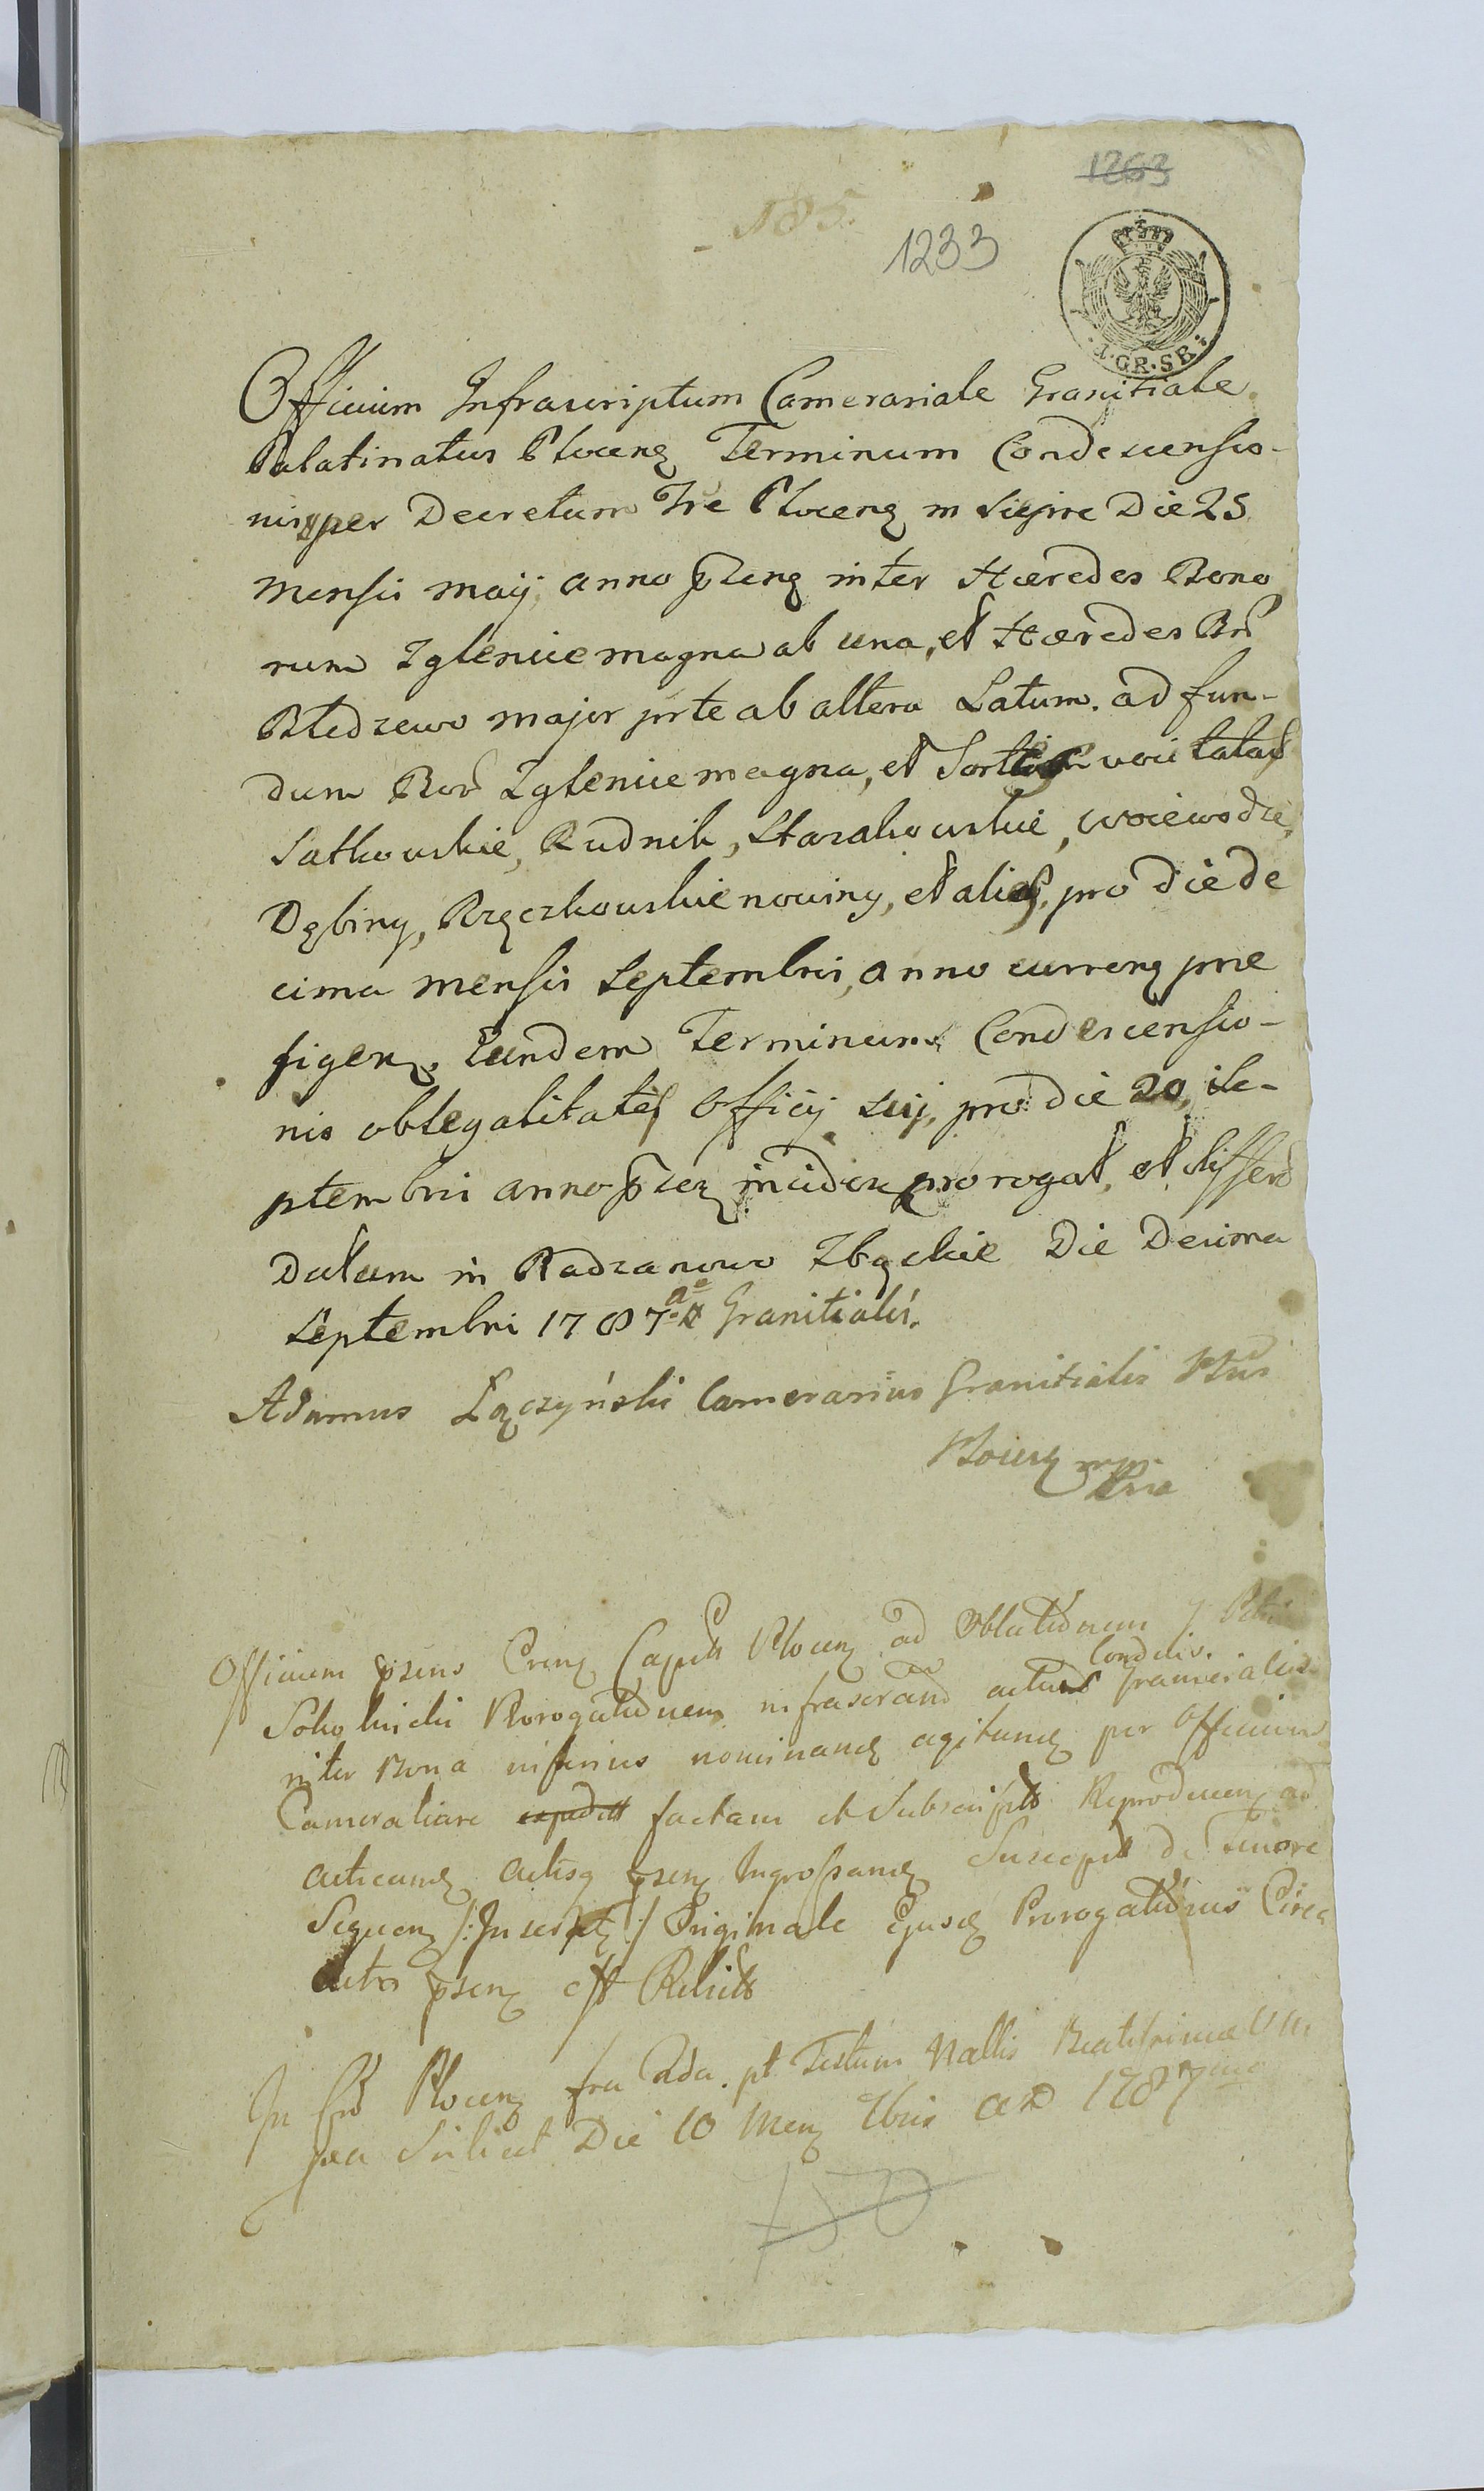 1263
185.
1233
1. GR. SR.
Officium Infrascriptum Camerariale Granitiale
Palatinatus Plocen Terminum Condescensio-
nis per Decretum Tre Plocen in Siepre Die 25
Mensis maij anno psenz inter Hæredes Bono
rum Zglenice magna ab una, et Hæredes Bru
Bledzewo major prte ab altera Latum. ad fun-
dum Bor Zglenice magna, et Sort vocitatas
Satkouskie, Rudnik, Starakouskie, woiewodze,
Dębiny, Rzęczkouskie nowiny, et alias, pro die de
cima mensis Septembris, anno curren pre
figen. Eundem Terminum Condescensio-
nis ob legalitates Officij sui, pro die 20, Se-
ptembris anno psen inciden prorogat, et differt
Datum in Radzanowo Zbąckie Die Decima
Septembri 1787 a Granitialis.
Adamus Łączyński Camerarius Granitialis Pltus
Plocen mpria
Officium psens Cren Capit Plocen ad Oblationem
Condeliv.
Sokolnicki Prorogationem infrascrand actus Granicialis
inter Bona inferius nominand agitand per Officium
Camerariare expedit factam et Subscript Reproducen ad
acticand Actisq psen Ingrossand Suscepit de Tenore
Sequen /: Inseratr :/ Originale Ejusd Prorogationis Circa
Acta psen est Relict
In Cro Plocen fra 2da. pt Festum Nattis Beatissimæ
scilicet Die 10 Men 7bris aD 1787mo